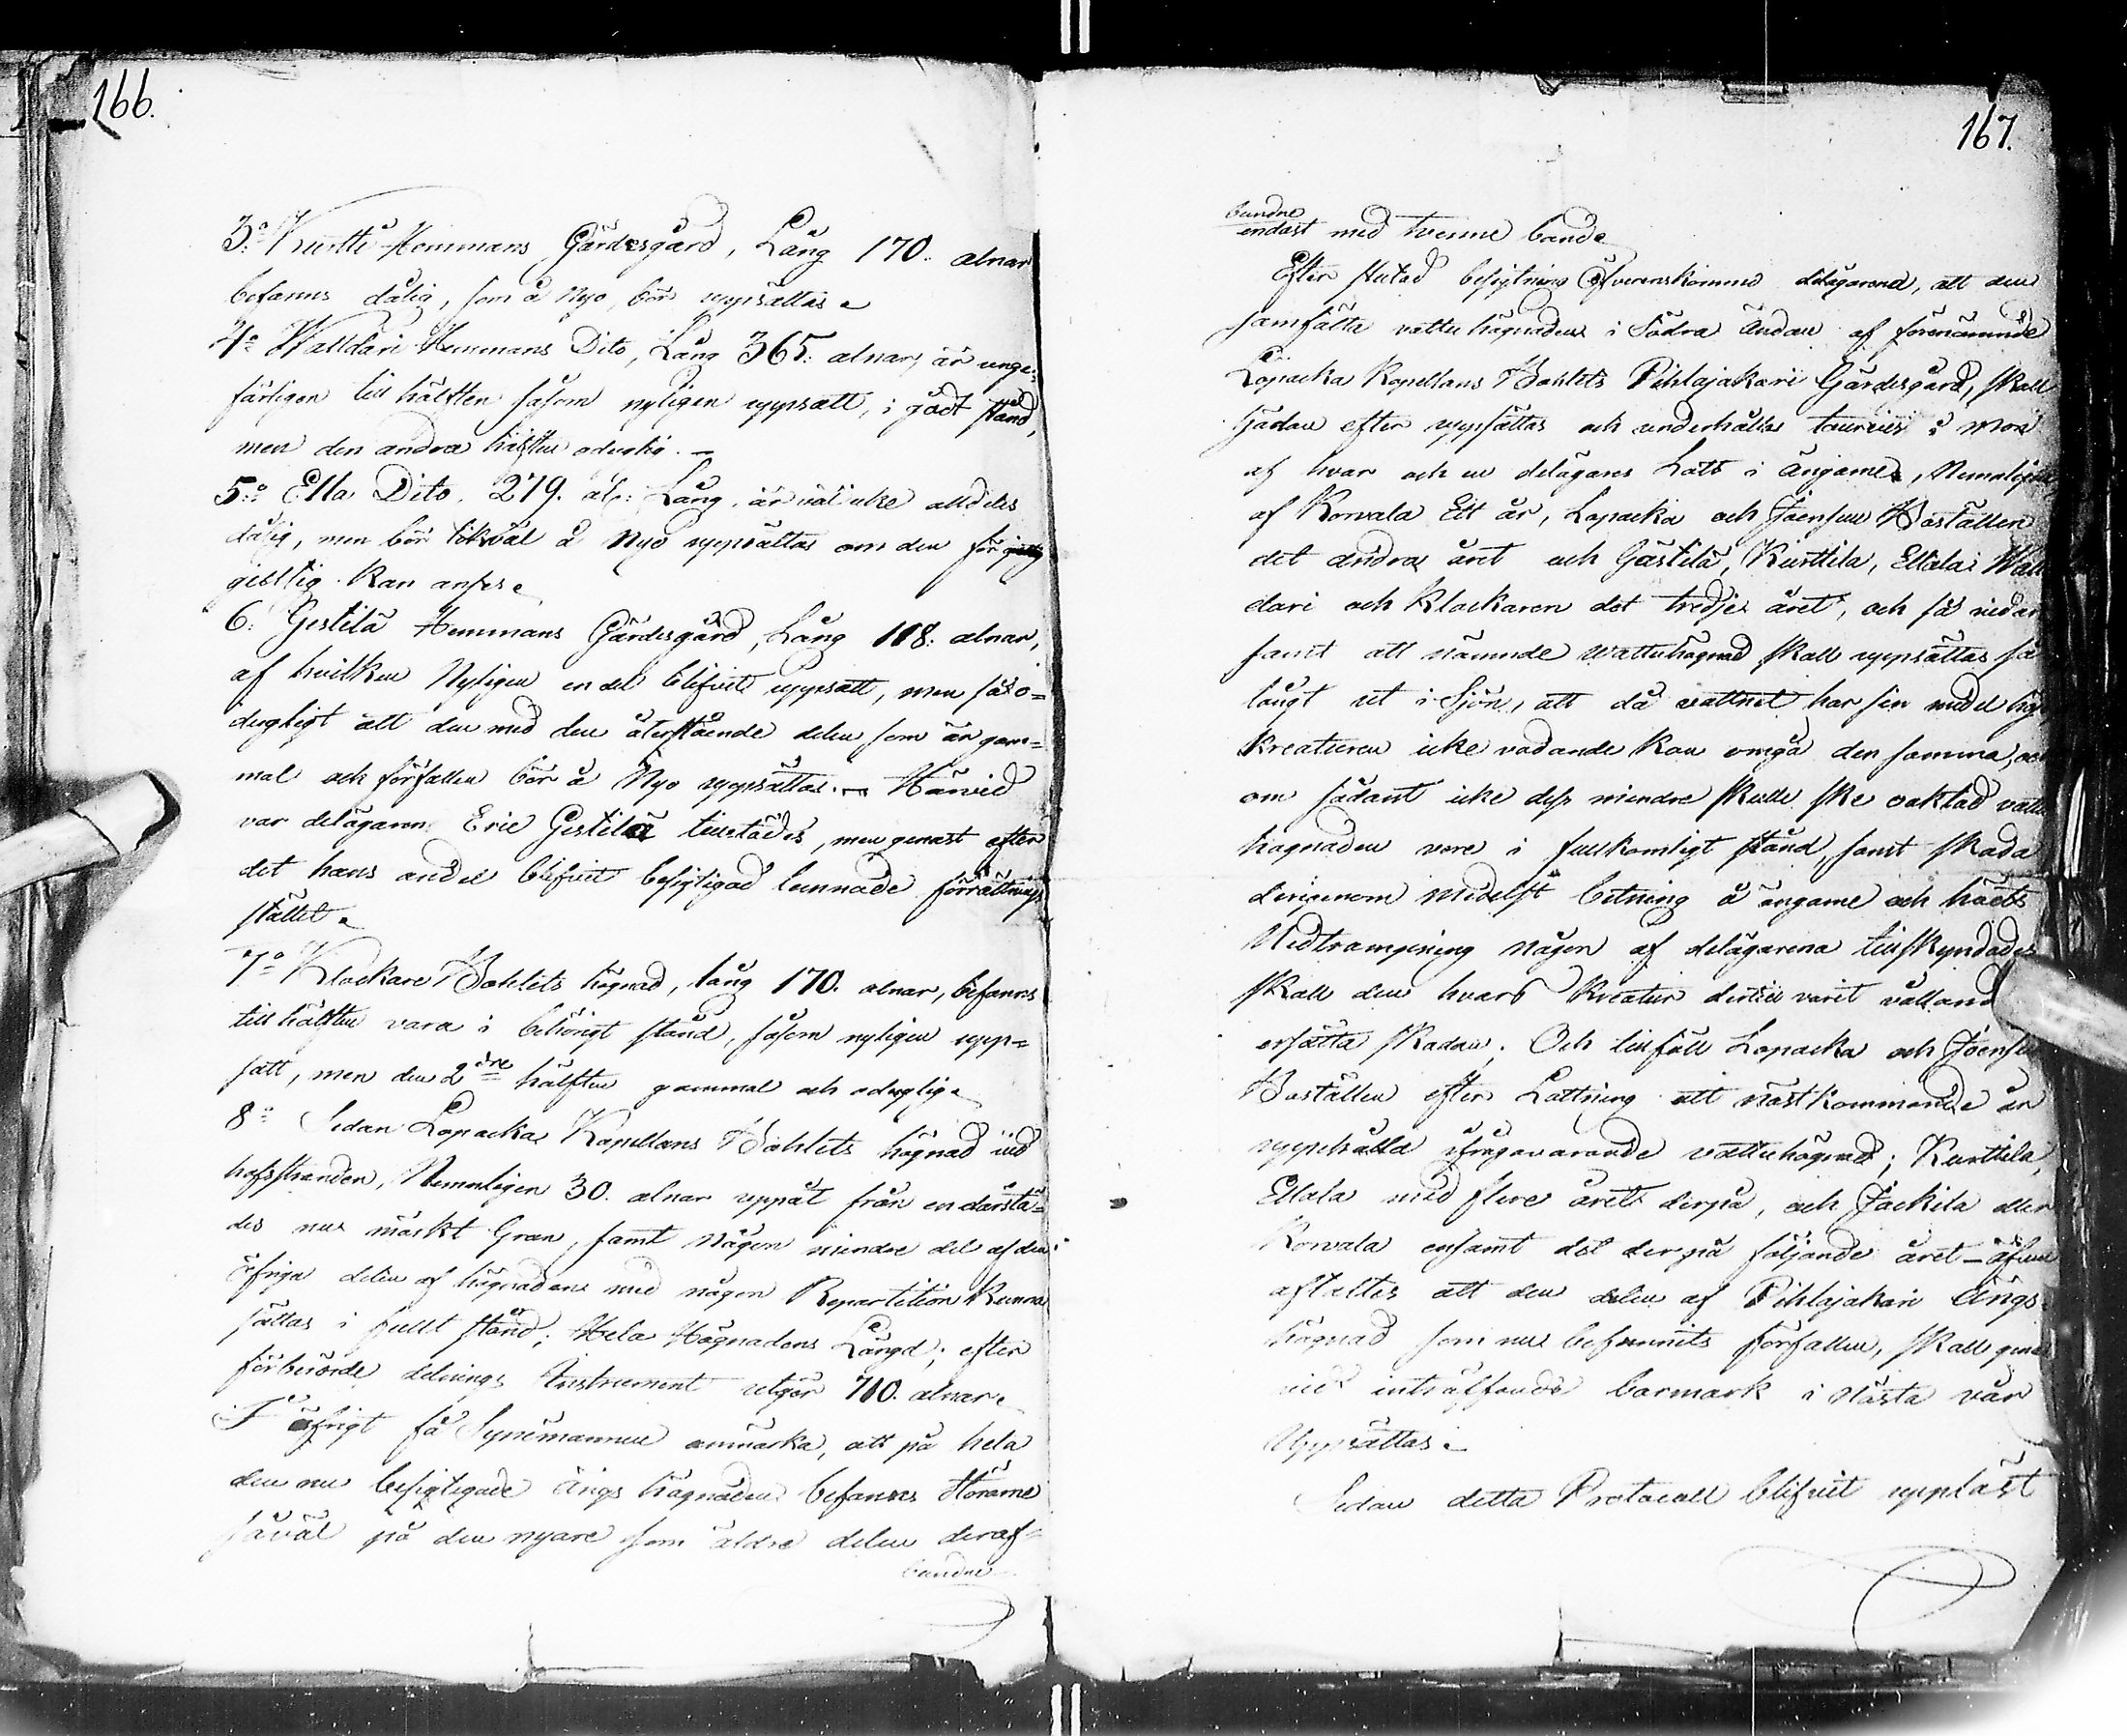 166.
3:o Kurtti Hemmans Gärdesgård, Lång 170. alnar
befanns dålig, som å Nyo, bör uppsättas.
4:o Walldari Hemmans Dito, Lång 365. alnar, är unge=
färligen till hälften såsom nyligen uppsatt, i godt stånd,
men den andra hälften oduglig. –
5:o Ella Dito. 279. al: Lång, är väl icke alldeles
dålig, men bör likväl å Nyo uppsättas om den för
gilltig kan anses.
6: Gestilä Hemmans Gärdesgård, Lång 118. alnar,
af hvilken Nyligen en del blifvit uppsatt, men så o=
dugligt att den med den återstående delen som är gam=
mal och förfallen bör å Nyo uppsättas. – Härvid
var delägaren Eric Gestilä tillstädes, men genast efter
det hans andel blifvit besigtigad lemnade förrättnings
stället.
7:o Klockare Bohlets hägnad, lång 170. alnar, befanns
till hälften vara i behörigt stånd, såsom nyligen upp=
satt, men den 2dre hälften gammal och oduglig.
8:o Sedan Lopacka Kapellans Bohlets hägnad vid
hafsstranden, Nemnligen 30. alnar uppåt från en därstä=
des nu märkt Gran, samt någon mindre del af den
öfriga delen af hägnadens med någon Repartition kunna
sättas i fullt stånd; Hela Hägnadens Längd; efter
förberörde delnings Instrument utgör 710. alnar.
I öfrigt få Synemännen anmärka, att på hela
den nu besigtigade Ängs hägnaden befanns Störarne
såväl på den nyare som äldre delen deraf
bundne
167.
bundne
endast med tvenne band.
Efter slutad besigtning öfverenskommo delägarena, att den
samfälta vattuhägnaden i Södra Ändan af förenämnde
Lopacka Kapellans Bohlets Pihlajakari Gärdesgård, skall
hädan efter uppsättas och underhållas turvis i mon
af hvar och en delägares Lott i ängarne, Nemnligen
af Korvala Ett år, Lopacka och Joensuu Boställen
det andra året och Gästilä, Kurttila, Ellala, Wall
dari och Klockaren det tredje året, och så vidare
samt att nämnde Wattuhägnad skall uppsättas så
långt ut i Sjön, att då vattnet har sin medel höjd
kreaturen icke vadande kan omgå den samma, och
om sådant icke dess mindre skulle ske oaktad vattu
hägnaden vore i fullkomligt stånd, samt skada
dirigenom medelst betning å ängarne och
Nedtrampning någon af delägarena tillskyndades
skall den hvars kreatur dertill varit vålland
ersätta skadan. Och tillföll Lopacka och Joensuu
Boställen efter Lottning att nästkommande år
upphålla ifrågavarande vattuhägnad; Kurttila,
Ellala med flere året derpå, och Jackila eller
Korvala ensamt det derpå följande året – äfven
aftaltes att den delen af Pihlajakari Ängs
hägnad som nu befunnits förfallen, skall genast
vid inträffande barmark i nästa vår
Uppsättas. –
Sedan detta Protocoll blifvit uppläst